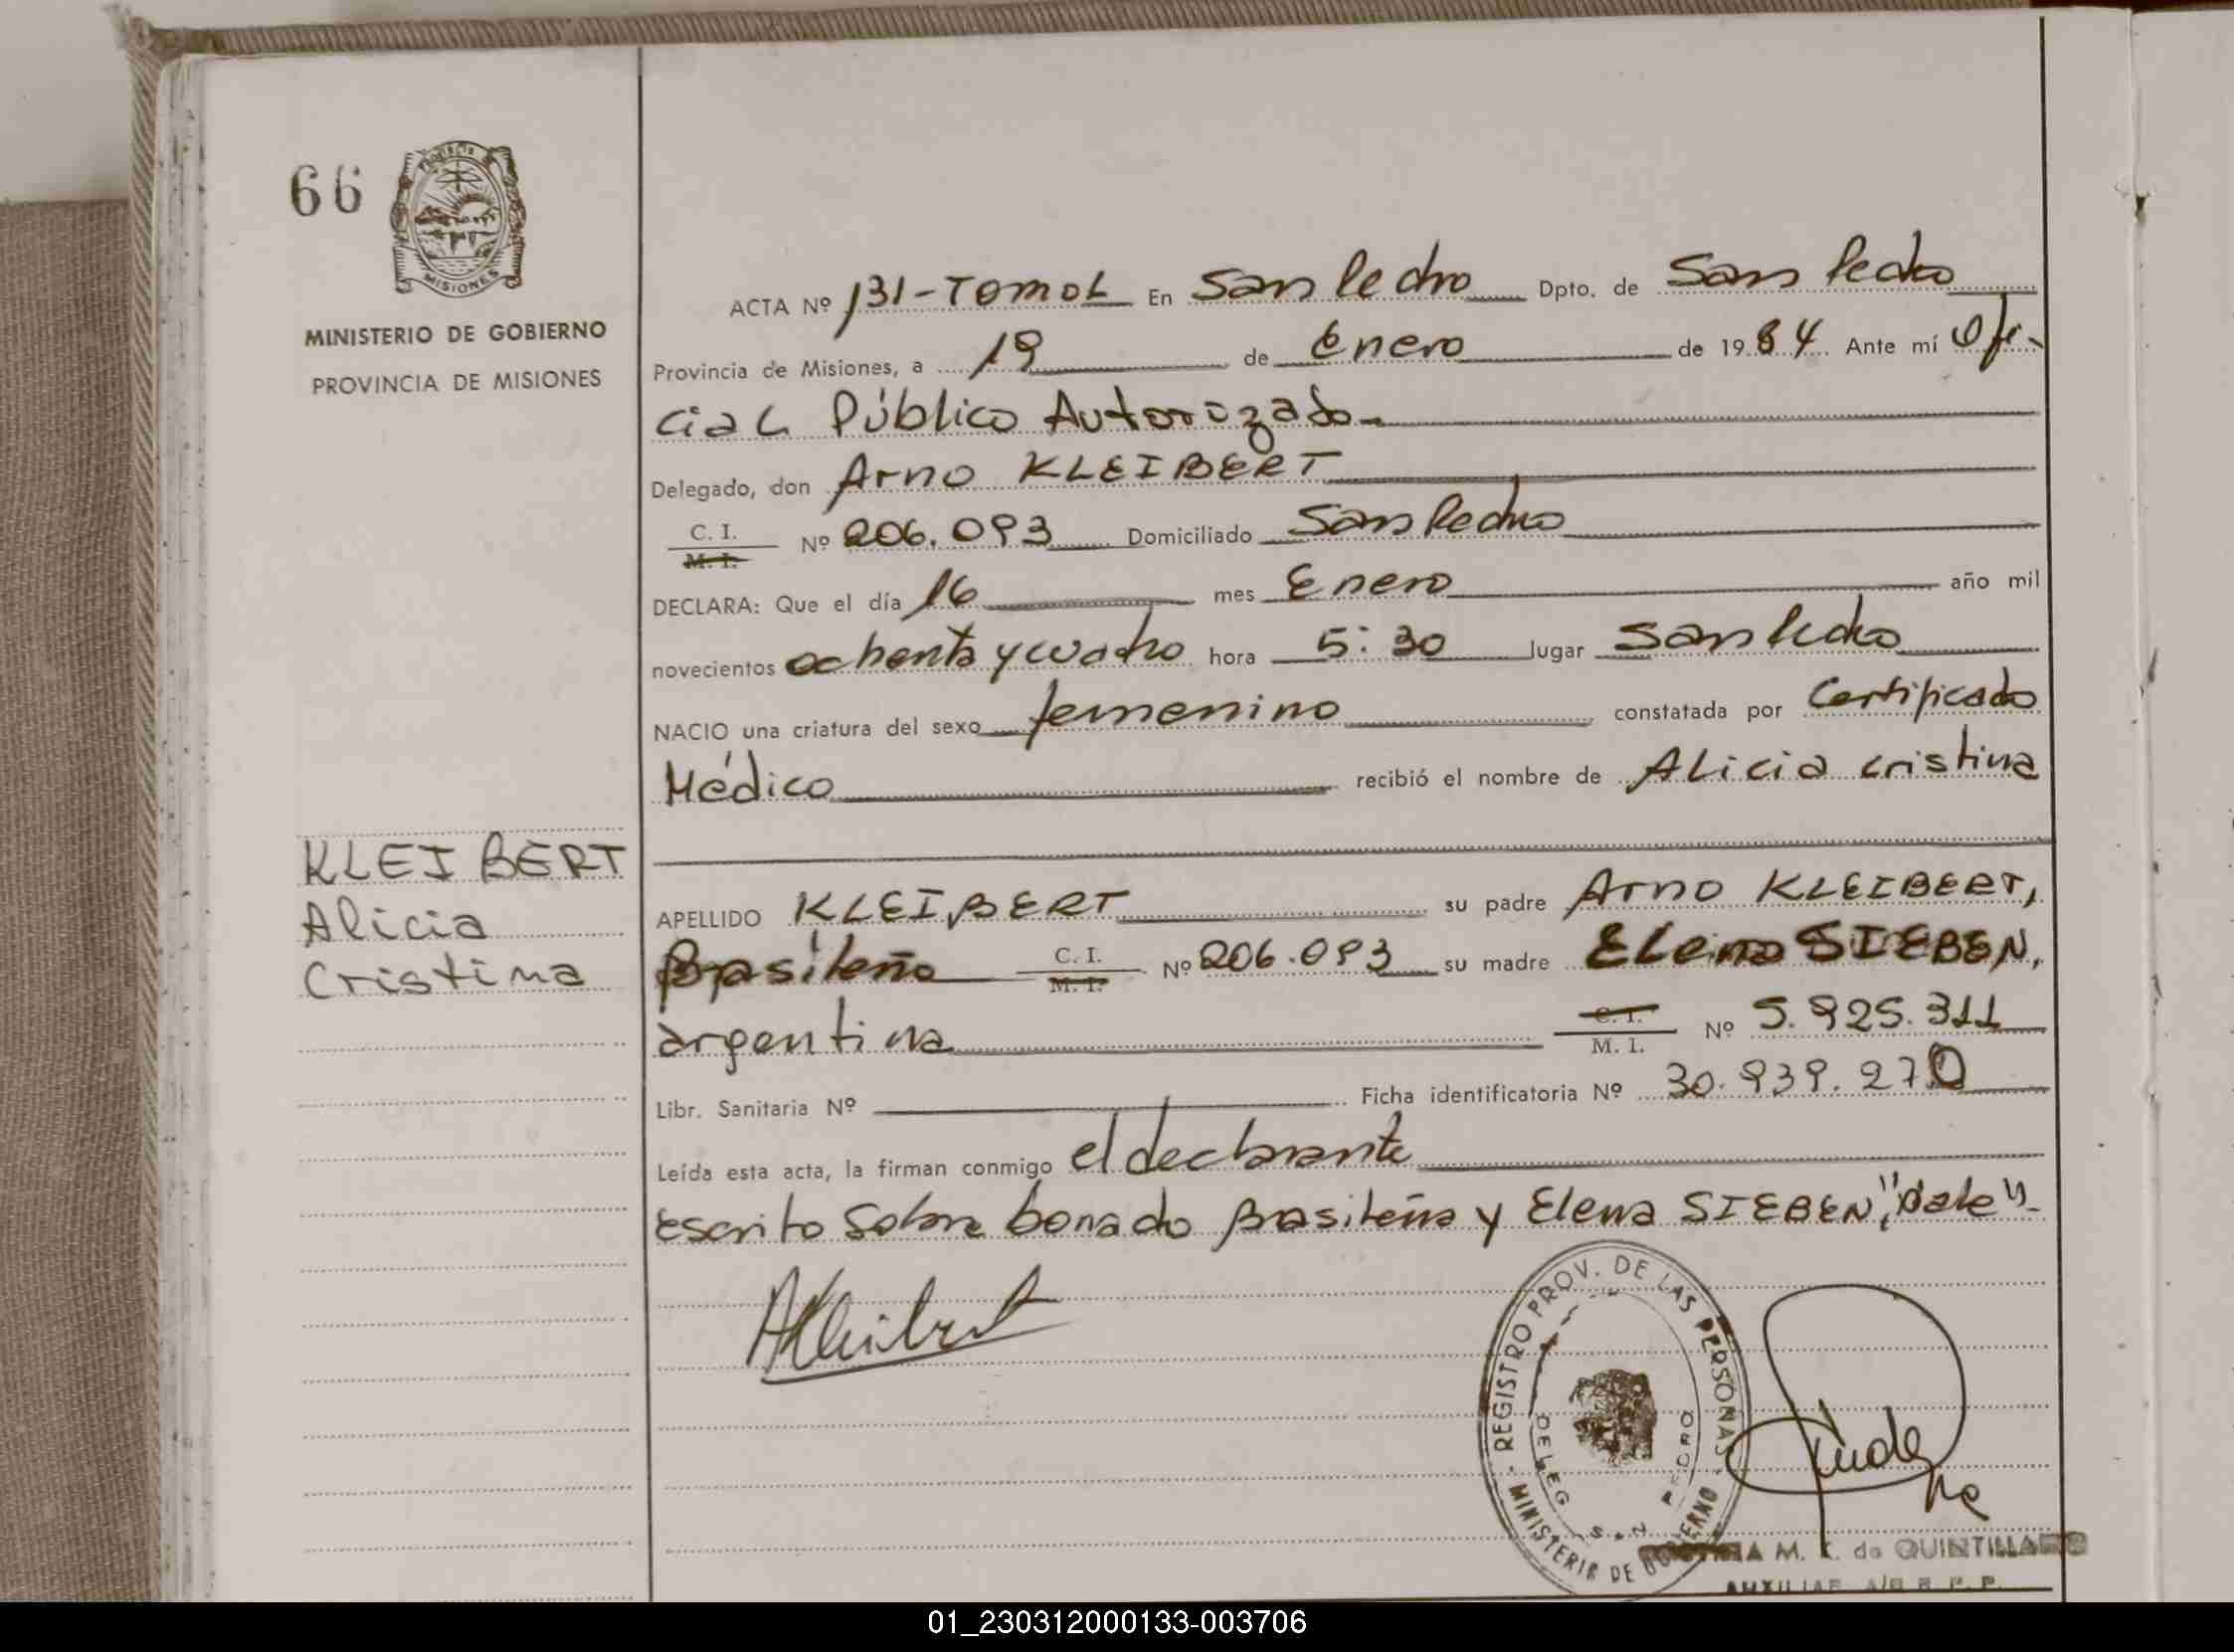 66
PROVINCIA
MISIONES
MINISTERIO DE GOBIERNO
PROVINCIA DE MISIONES
KLEIBERT
Alicia
Cristina
ACTA Nº 131-TOMO L En San Pedro Dpto. de San Pedro
Provincia de Misiones, a 19 de Enero de 1984 Ante mí Ofi-
cial Público Autorizado.
Delegado, don Arno KLEIBERT
C. I. M. I. Nº 206.093 Domiciliado San Pedro
DECLARA: Que el día 16 mes Enero año mil
novecientos ochenta y cuatro hora 5:30 lugar San Pedro
NACIO una criatura del sexo femenino constatada por Certificado
Médico recibió el nombre de Alicia Cristina
APELLIDO KLEIBERT su padre Arno KLEIBERT,
Brasileño C. I. M. I. Nº 206.093 su madre Elena SIEBEN,
argentina C. I. M. I. Nº 5.925.311
Libr. Sanitaria Nº Ficha identificatoria Nº 30.939.270
Leída esta acta, la firman conmigo el declarante
escrito sobre borrado Brasileño y Elena SIEBEN, "Vale".
AKleibert
REGISTRO PROV. DE LAS PERSONAS
MINISTERIO DE GOBIERNO
DELEG SAN PEDRO
M. de QUINTILLANO
AUXILIAR
01_230312000133-003706